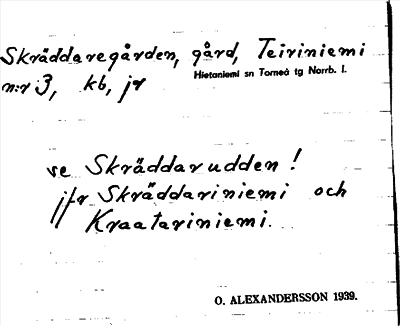 Skräddaregården, gård, Teiriniemi
Hietaniemi sn Torneå tg Norrb. l.
n:r 3, kb, jr
se Skräddarudden!
jfr Skräddariniemi och
Kraatariniemi.
O. ALEXANDERSSON 1939.